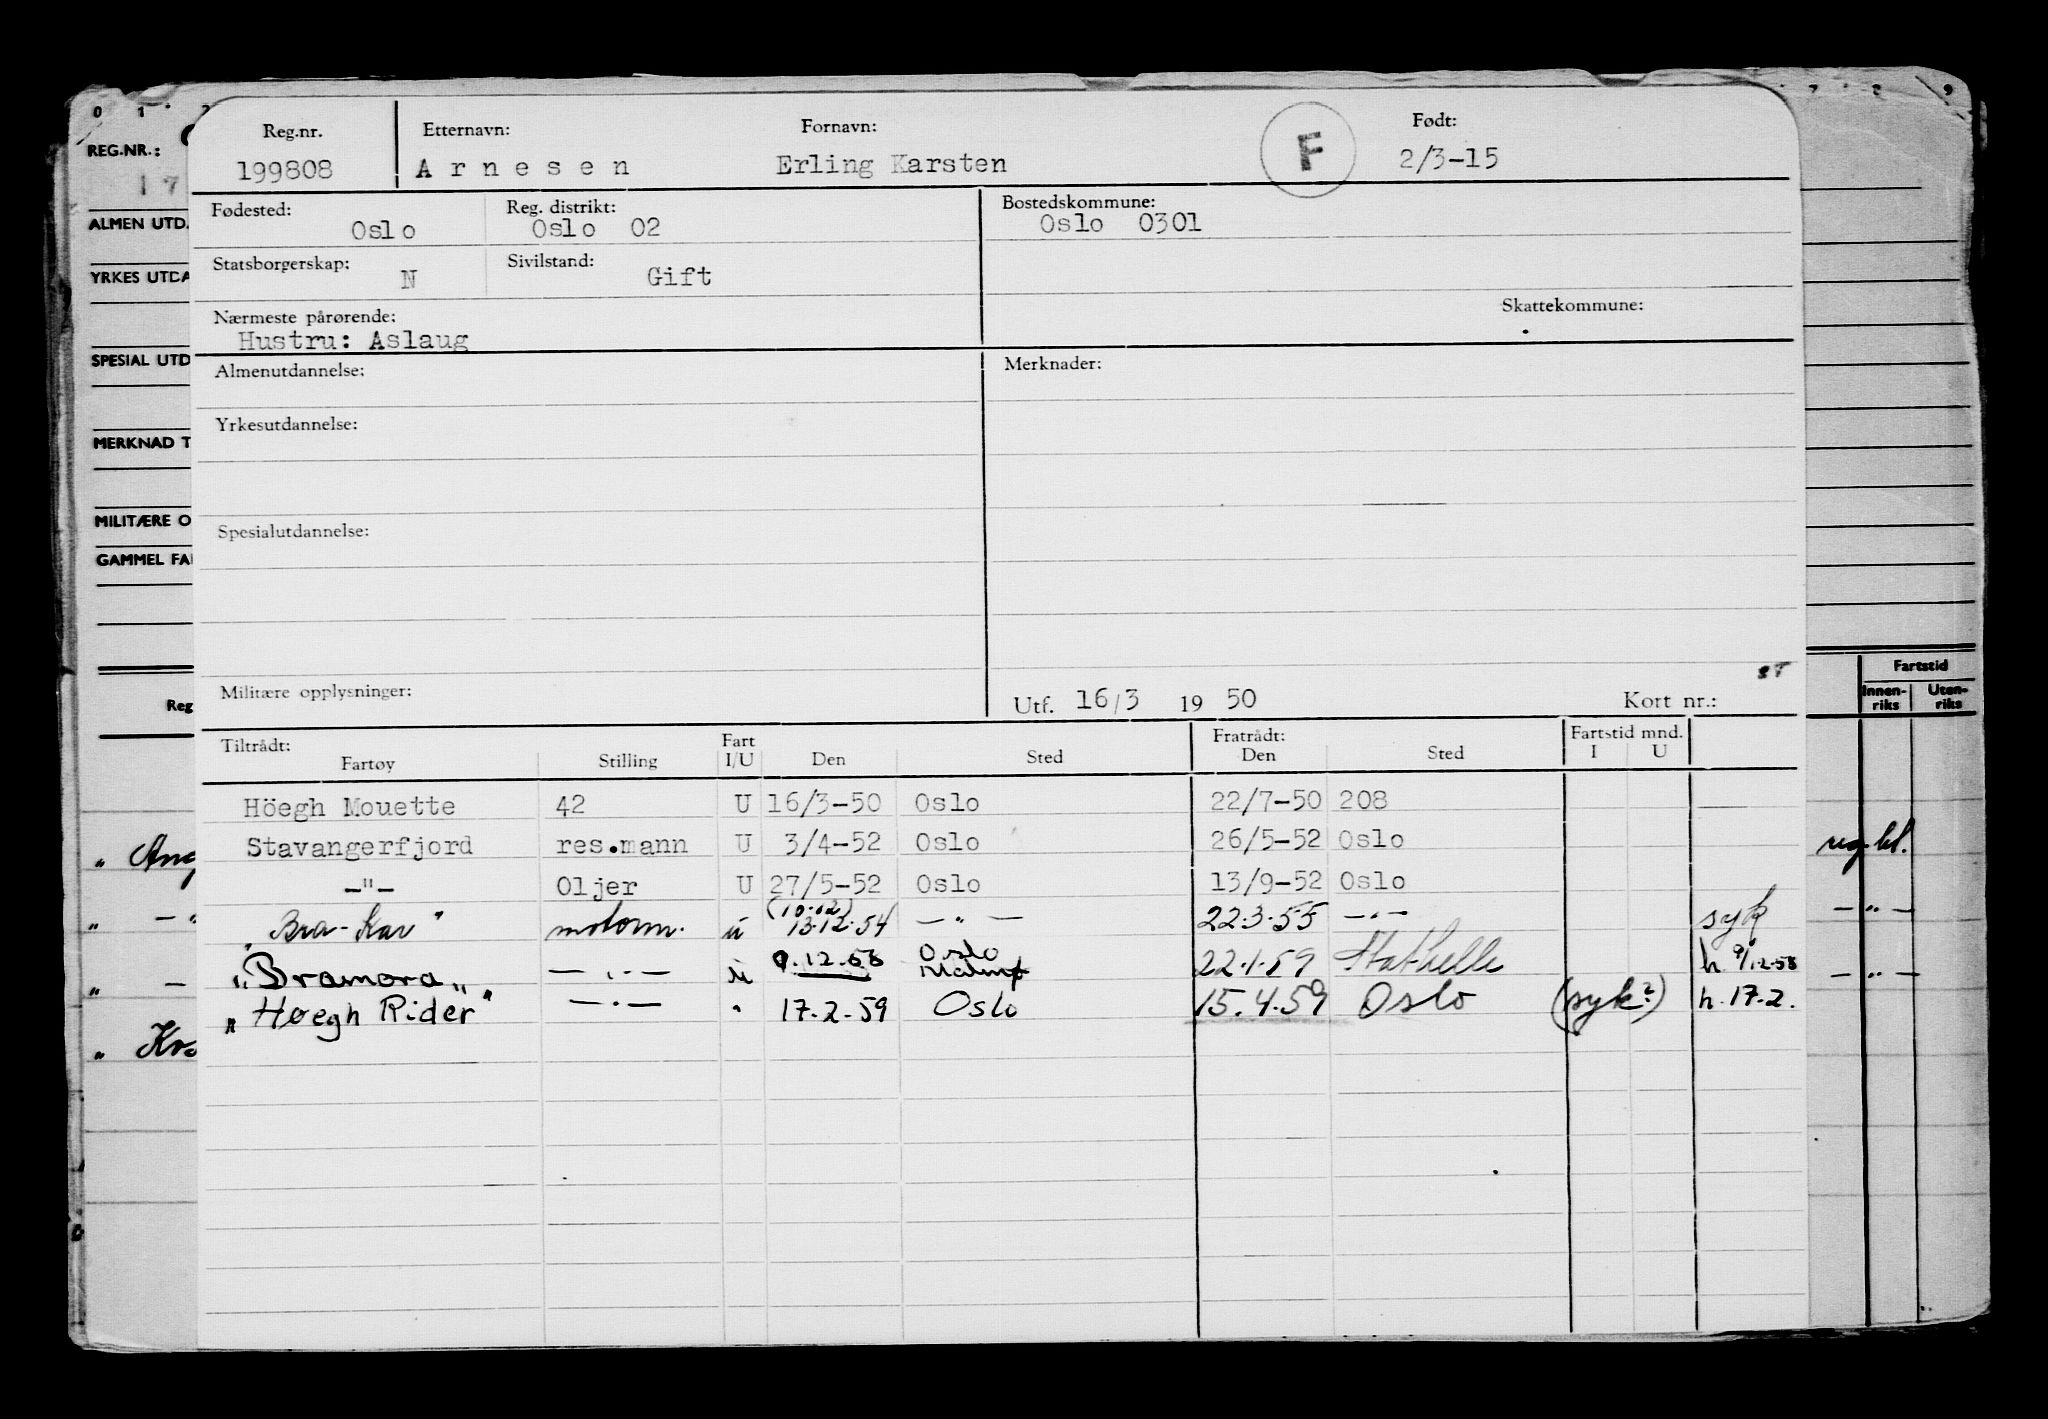 0 1
7 8 9
REG.NR.:
1 7
ALMEN UTD.
YRKES UTDA
SPESIAL UTD
MERKNAD T
MILITÆRE O
GAMMEL FA
Reg
Reg.nr. Etternavn: Fornavn: Født:
199808 Arnesen Erling Karsten F 2/3-15
Fødested: Reg. distrikt: Bostedskommune:
Oslo Oslo 02 Oslo 0301
Statsborgerskap: Sivilstand:
N Gift
Nærmeste pårørende: Skattekommune:
Hustru: Aslaug
Almenutdannelse: Merknader:
Yrkesutdannelse:
Spesialutdannelse:
Militære opplysninger: Utf. 16/3 19 50 Kort nr.:
Fartstid
Innen-riks Uten-riks
Tiltrådt: Fart Fratrådt: Fartstid mnd.
Fartøy Stilling I/U Den Sted Den Sted I U
Höegh Mouette 42 U 16/3-50 Oslo 22/7-50 208
Stavangerfjord res.mann U 3/4-52 Oslo 26/5-52 Oslo
—"— Oljer U 27/5-52 Oslo 13/9-52 Oslo
(10.12)
"Bra-Kar" motorm. u 13.12.54 —"— 22.3.55 —"— syk
Oslo
"Bramora" —"— u 9.12.58 22.1.59 Stathelle h. 9/12-58
"Høegh Rider" —"— " 17.2.59 Oslo 15.4.59 Oslo (syk?) h. 17.2.